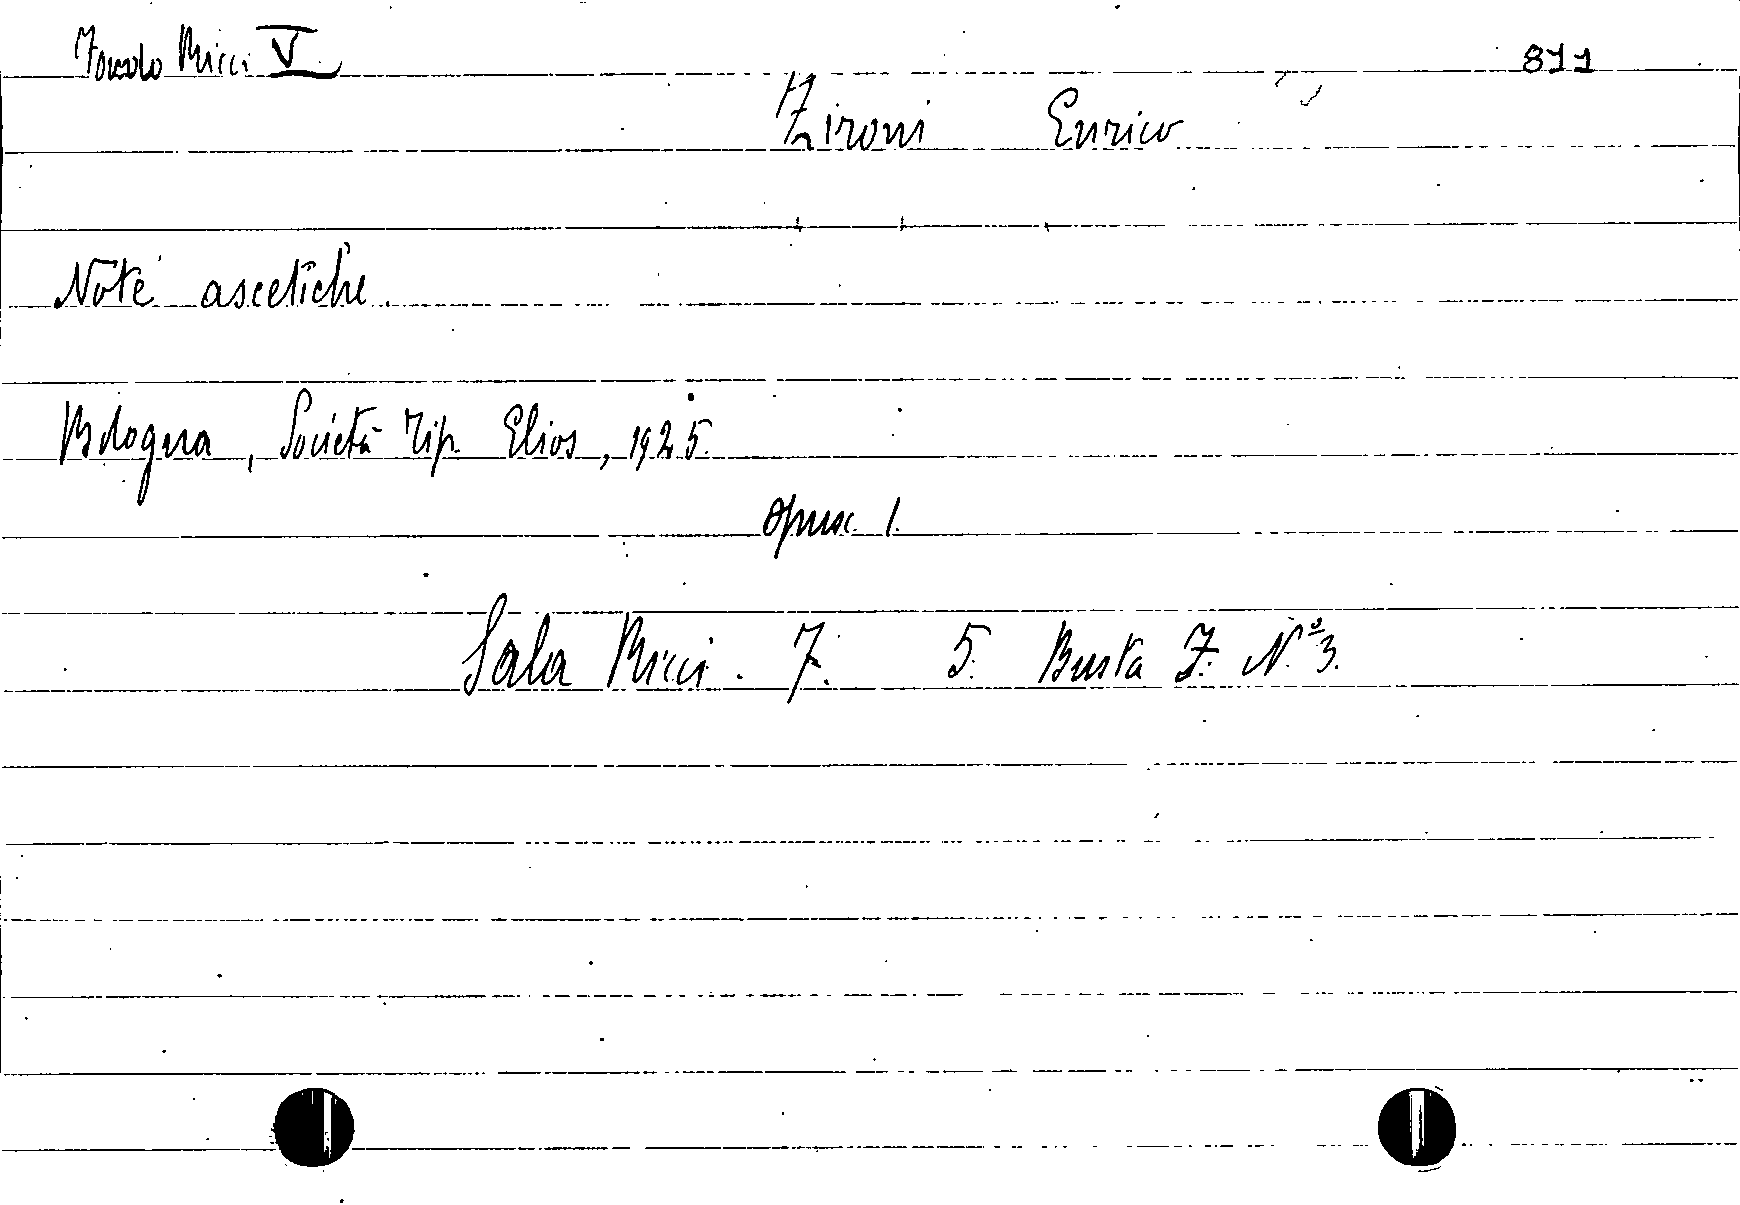 Fondo Ricci V 871
Zironi Enrico
Note ascetiche.
Bologna, Società Tip. Elios, 1925.
Opusc. 1.
Sala Ricci. 7. 5. Busta I. N.º 3.